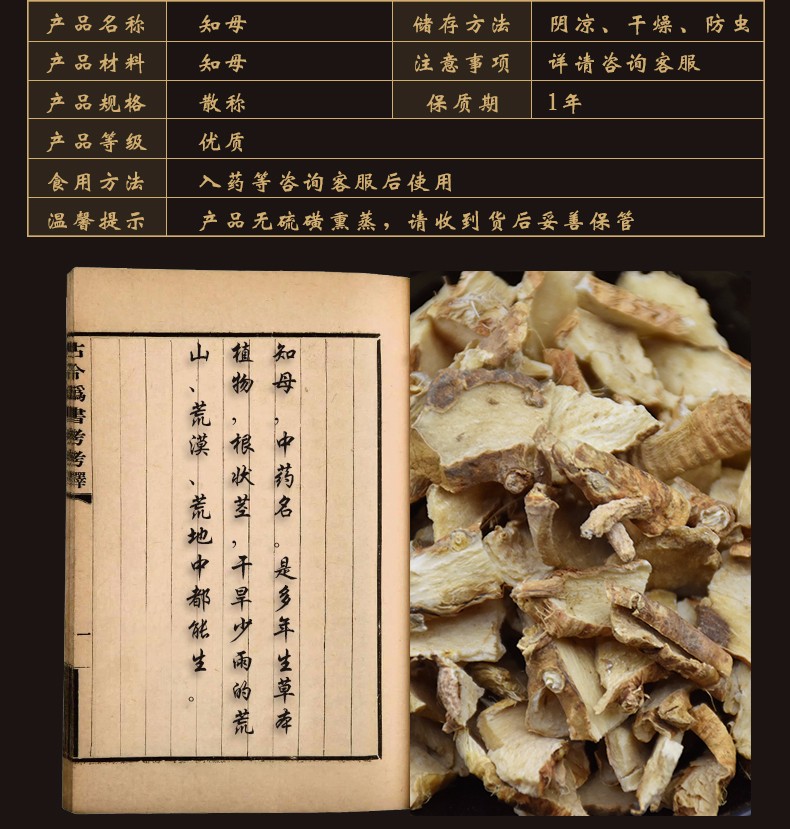 产品名称 知母 储存方法 阴凉、干燥、防虫
产品材料 知母 注意事项 详请咨询客服
产品规格 散称 保质期 1年
产品等级 优质
食用方法 入药等咨询客服后使用
温馨提示 产品无硫磺熏蒸，请收到货后妥善保管
知母，中药名。是多年生草本
植物，根状茎，干旱少雨的荒
山、荒漠、荒地中都能生。
古今伪書考考釋
一